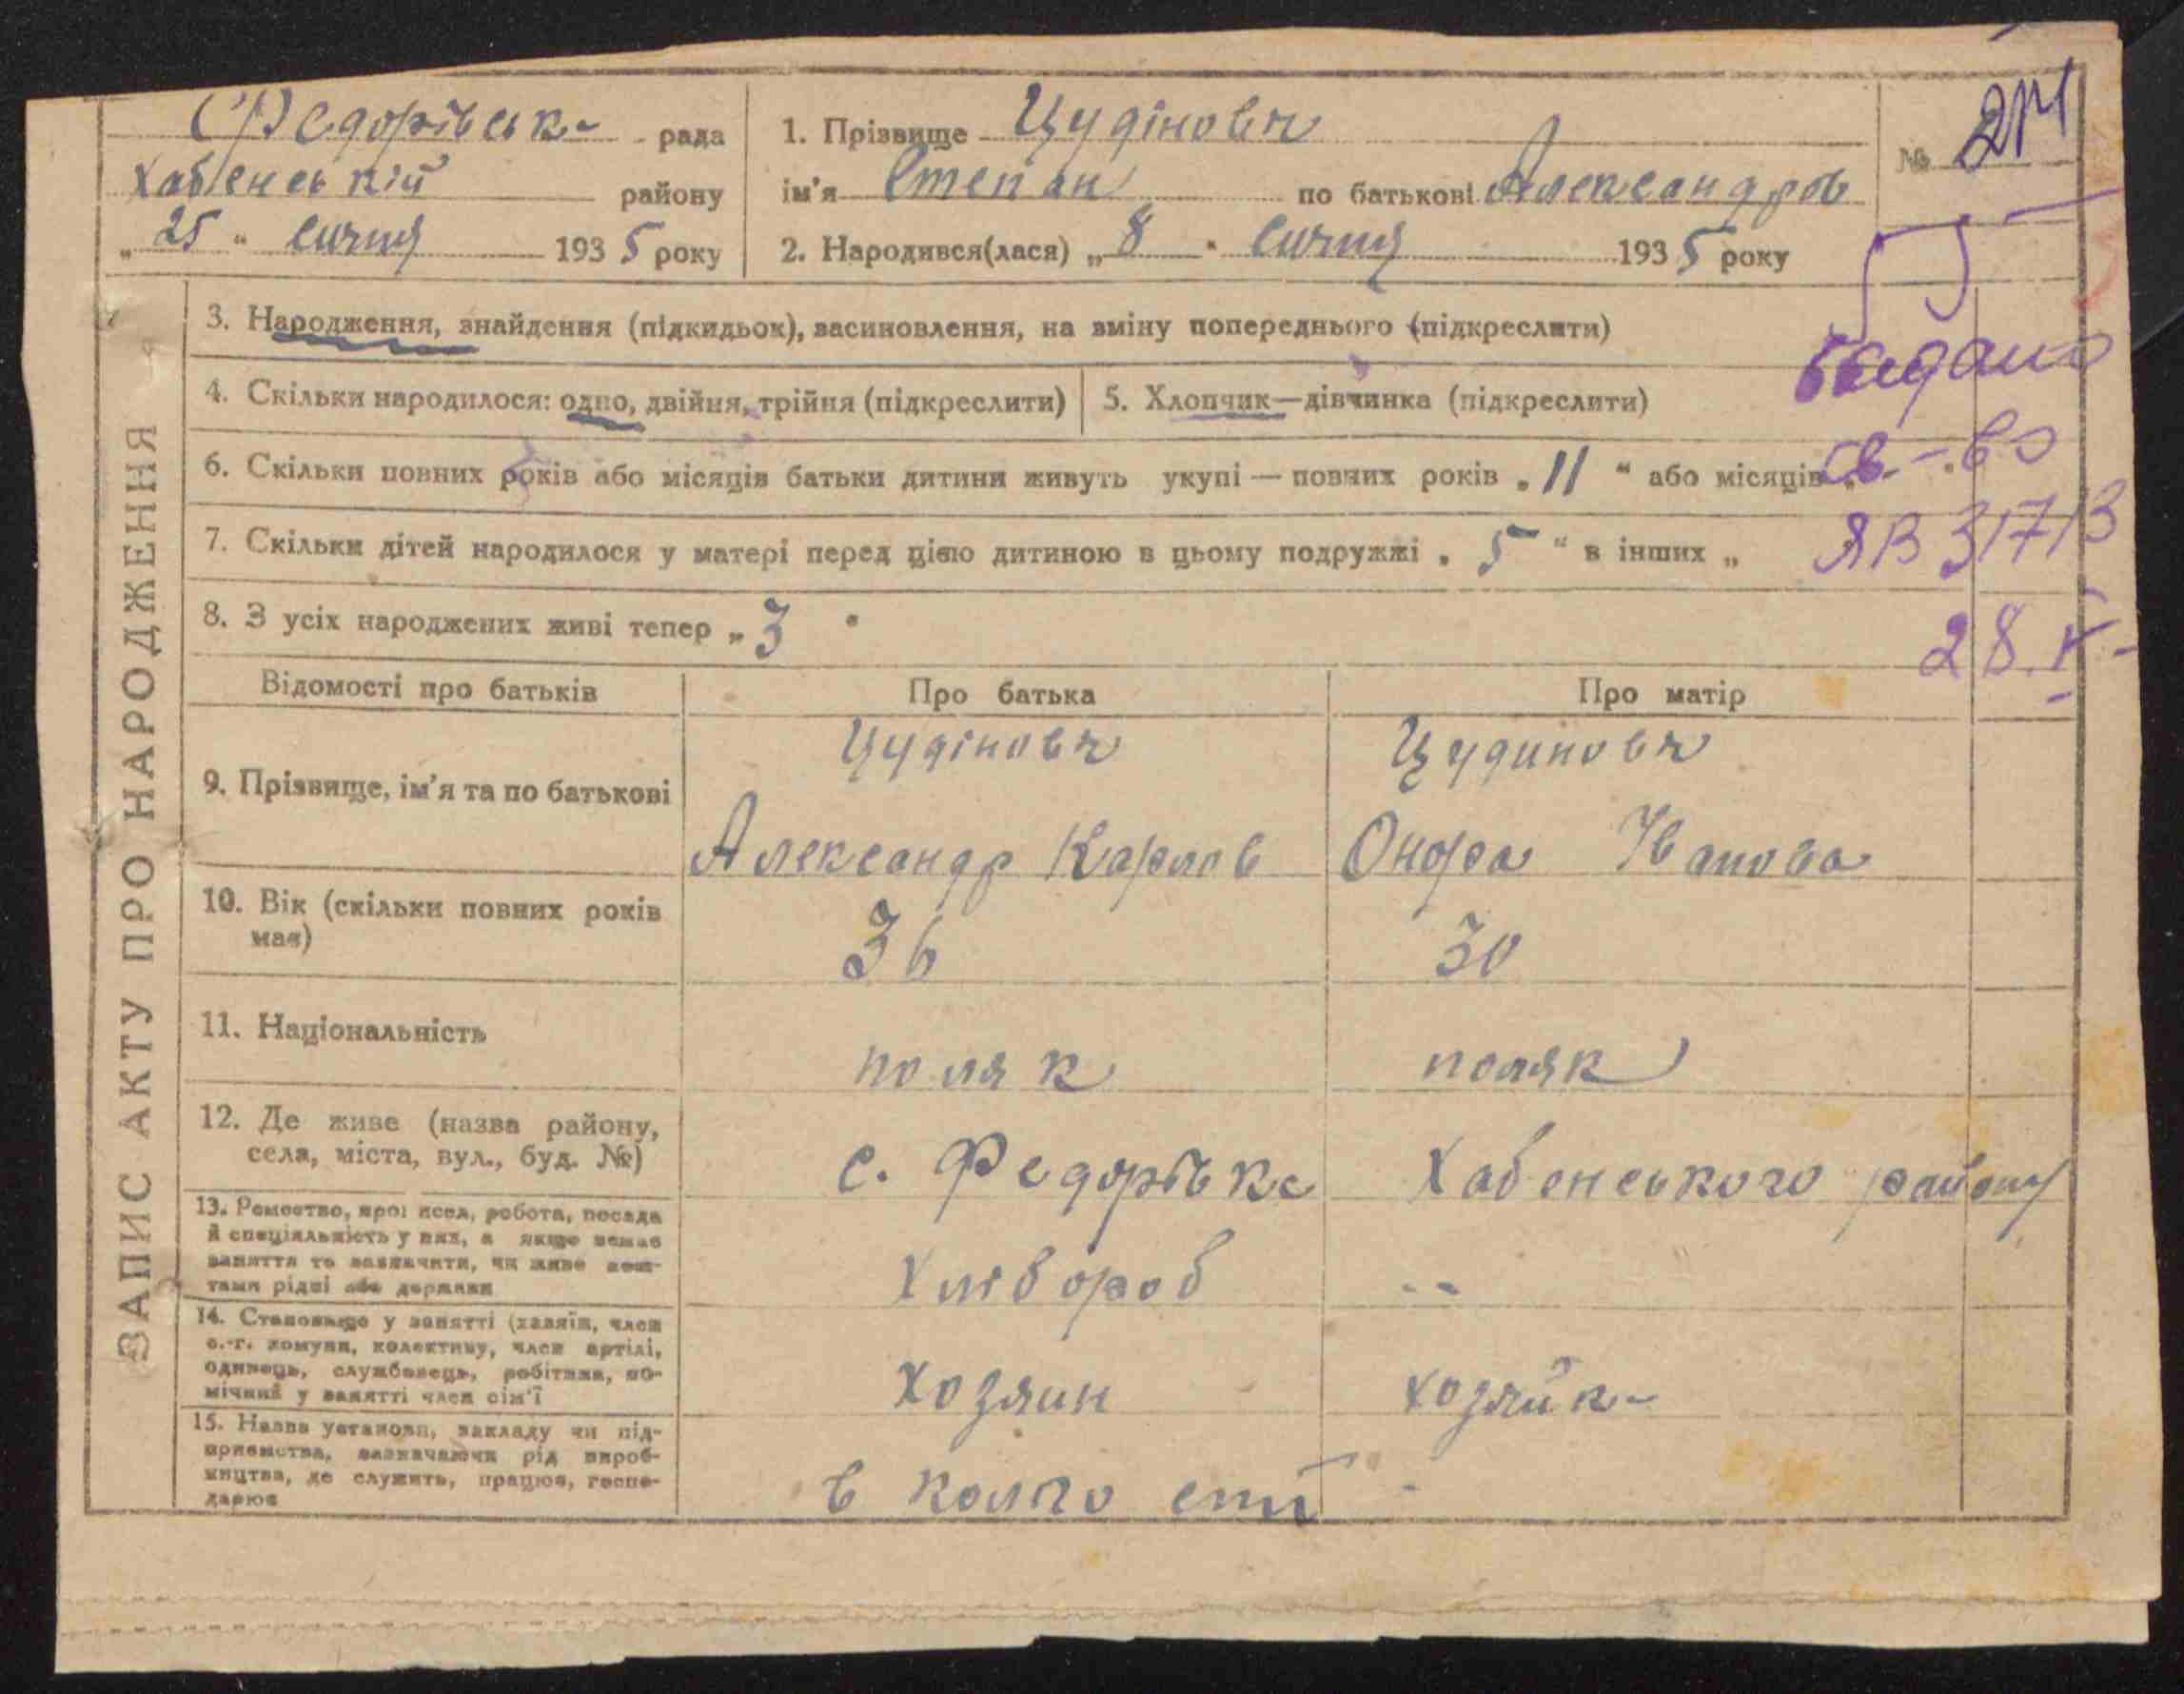 Федорівська рада
Хабенській району
„25“ січня 1935 року
1. Прізвище Цудінович
ім'я Степан по батькові Александров
2. Народився(лася) „8“ січня 1935 року
№
3. Народження, знайдення (підкидьок), васиновлення, на зміну попереднього (підкреслити)
4. Скільки народилося: одно, двійня, трійня (підкреслити)
5. Хлопчик—дівчинка (підкреслити)
Видано
6. Скільки повних років або місяців батьки дитини живуть укупі — повних років „11“ або місяців „
св-во
7. Скільки дітей народилося у матері перед цією дитиною в цьому подружжі „5“ в інших „
ЯВ 31713
8. З усіх народжених живі тепер „3“
28.V-
ЗАПИС АКТУ ПРО НАРОДЖЕННЯ
Відомості про батьків
Про батька
Про матір
9. Прізвище, ім'я та по батькові
Цудінович
Александр Карлов
Цудинович
Іванова
10. Вік (скільки повних років
має)
36
30
11. Національність
поляк
поляк
12. Де живе (назва району,
села, міста, вул., буд. №)
с. Федорівка
Хабенського району
13. Ремество, професія, робота, посада
й спеціяльність у них, а якщо немає
заняття то зазначити, чи живе кош-
тами рідні або держави
Хлібороб
--
14. Становище у занятті (хазяїн, член
с.-г. комуни, колективу, член артілі,
одинець, службовець, робітник, по-
мічний у занятті член сім'ї
хозяин
хозяйка
15. Назва установи, закладу чи під-
приємства, зазначаючи рід вироб-
ництва, де служить, працює, госпо-
дарює
в колгоспі
-